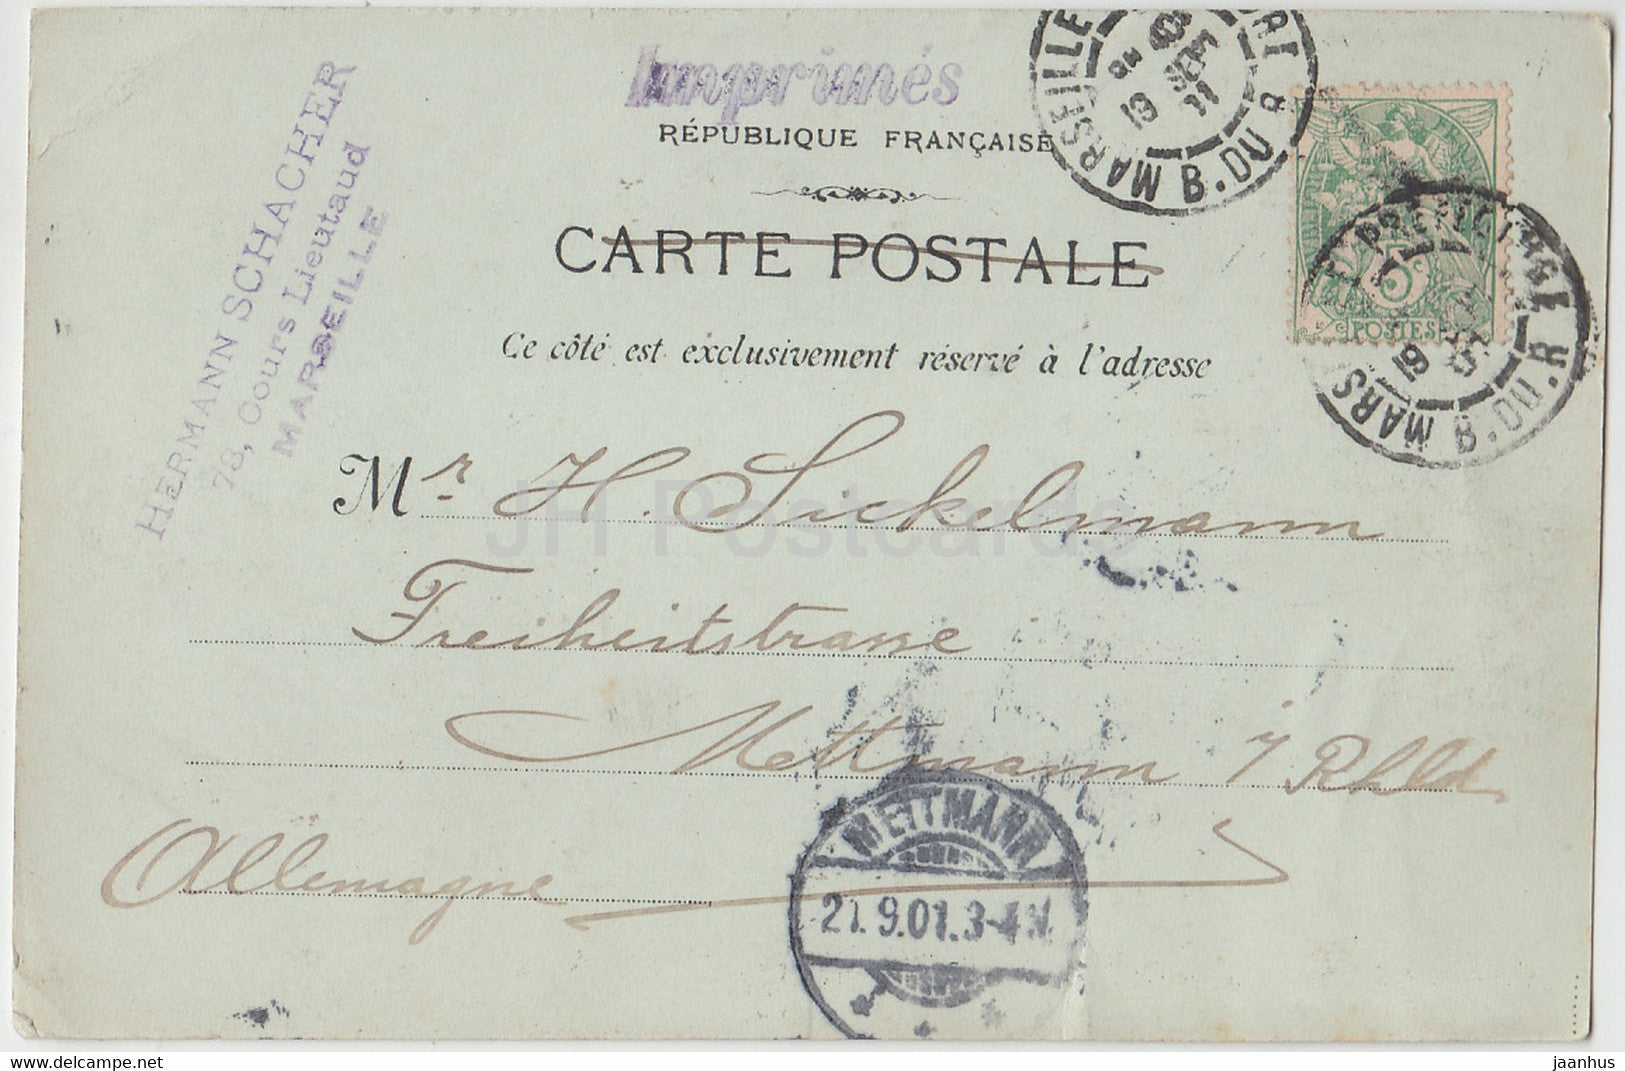 Imprimés
RÉPUBLIQUE FRANÇAISE
CARTE POSTALE
Ce côté est exclusivement réservé à l'adresse
HERMANN SCHACHER
78, Cours Lieutaud
MARSEILLE
MARSEILLE
19 SEPT
B. DU R
POSTES
5
MARS
19
B. DU. R
Mr. H. Sickelmann
Freiheitstrasse
Mettmann i/ Rhld.
Allemagne
METTMANN
21.9.01.3-4N.
JH Postcards
delcampe.net
jaanhus